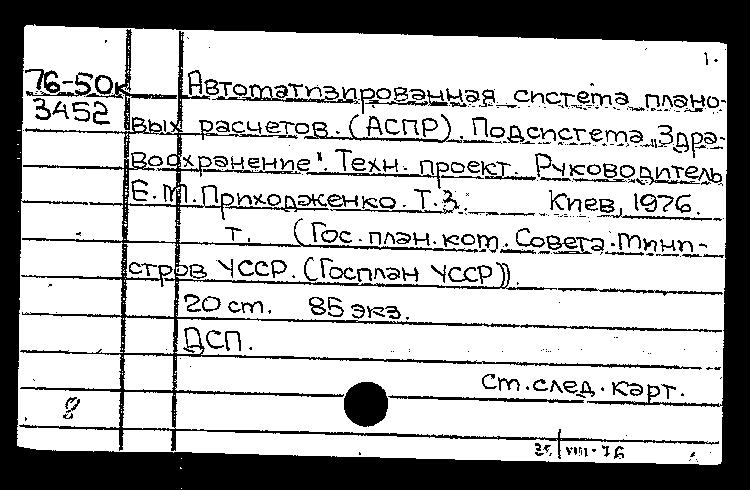 1.
76-50к Автоматизированная система плано-
3452 вых расчетов. (АСПР). Подсистема „Здра-
воохранение". Техн. проект. Руководитель
Е.М. Приходженко. Т.3. Киев, 1976.
т. (Гос. план. ком. Совета Мини-
стров УССР. (Госплан УССР)).
20 ст. 85 экз.
ДСП.
См. след. карт.
8
VIII-76